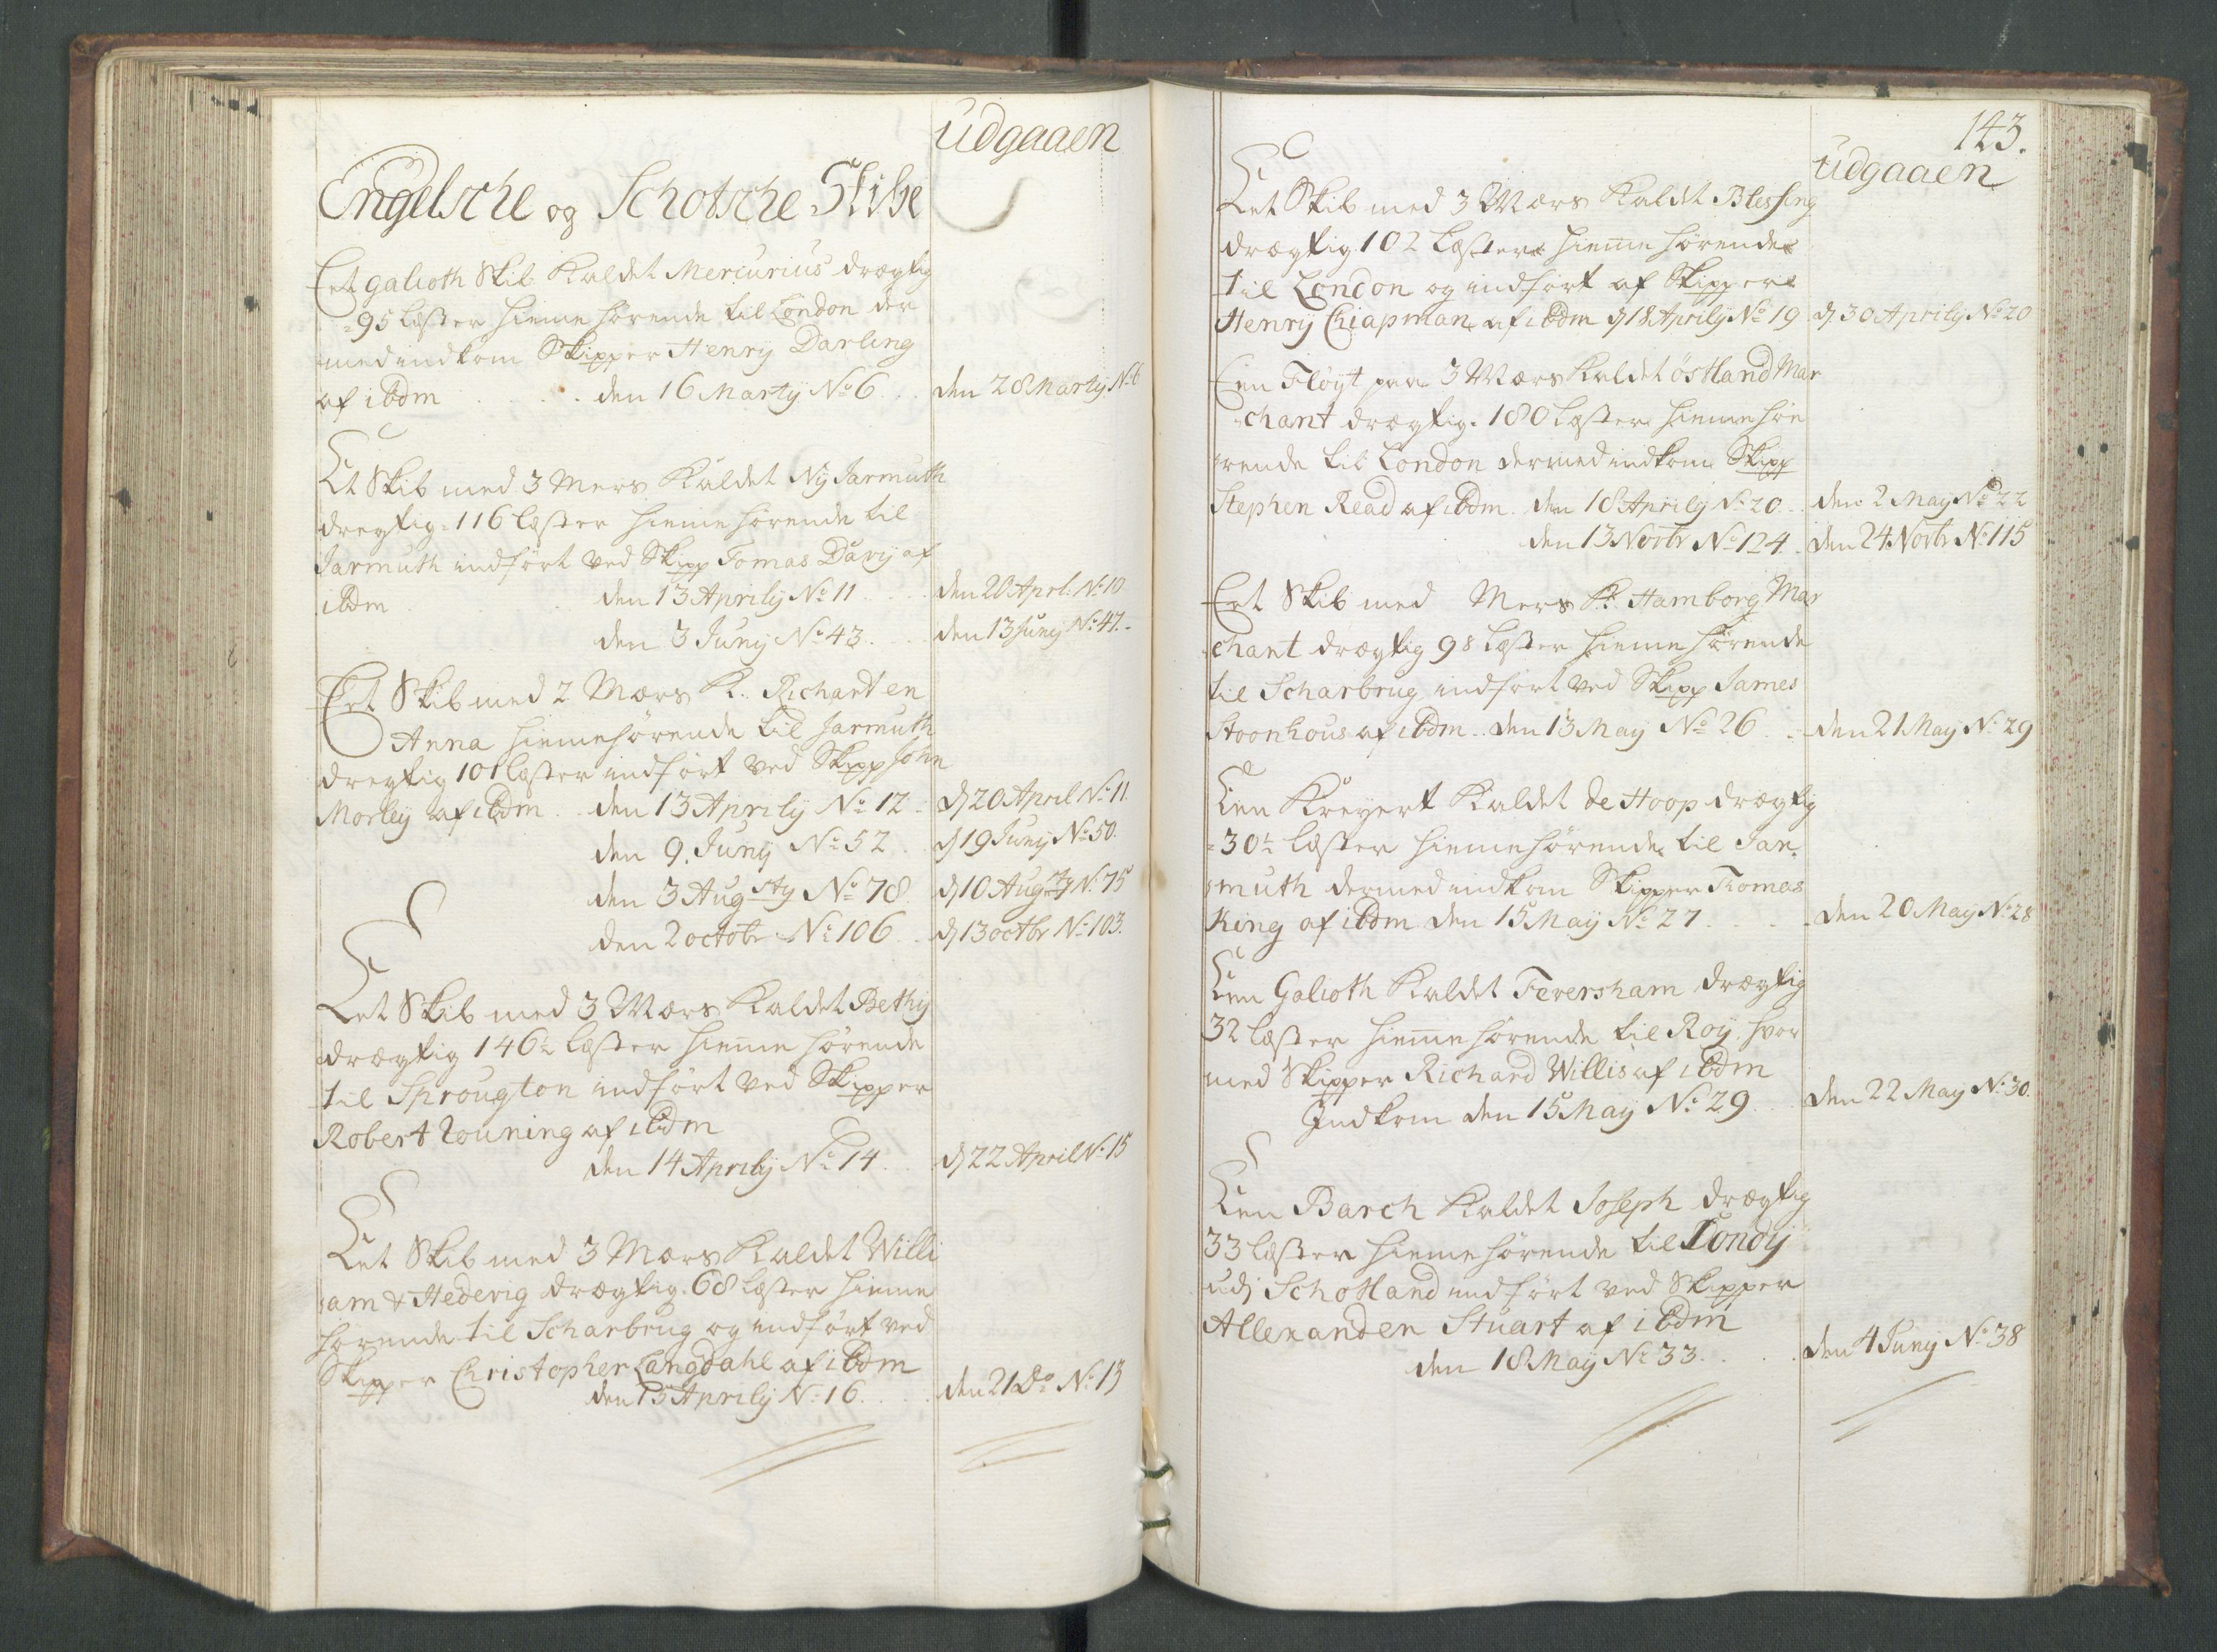 udgaaen
Engelsche og Schotsche Skibe
Eet galioth Skib Kaldet Mercurius drægtig
95 læster hieme hørende til London der
med indkom Skipper Henrij Darling
af ibdm . . . . . den 16 Martij No 6 . . . den 28 Martij No 6
Et Skib med 3 Mers Kaldet Nÿ Jarmuth
dregtig 116 læster hieme hørende til
Jarmuth indført ved Skipp Tomas Davij af
ibdm . . den 13 Aprilij No 11 . . . . den 20 Aprl: No 10
den 3 Junij No 43 . . . den 13 Junij No 47.
Eet Skib med 2 Mers K. Richart en
Anna hiemehørende til Jarmuth
dregtig 101 læster indført ved Skipp John
Morley af ibdm . . den 13 Aprilij No 12 . d 20 April No 11.
den 9. Junij No 52 . . d 19 Junij No 50.
den 3 Augsty No 78. d 10 Augsty No 75
den 2 octobr No 106 . . d 13 octbr No 103.
Eet Skib med 3 Mers Kaldet Bethy
drægtig 146½ læster hieme hørende
til Sprougton indført ved Skipper
Robert Youning af ibdm
den 14 Aprilij No 14 . . d 22 April No 15
Eet Skib med 3 Mers Kaldet Willi
am & Hedevig drægtig 68 læster hieme
hørende til Scharbrug og indført ved
Skipper Christopher Langdahl af ibdm
den 15 Aprilij No 16 . . . . den 21 Do No 13
143.
udgaaen
Eet Skib med 3 Mers Kaldet Blessing
drægtig 102 læster hieme hørende
til London og indført af Skipper
Henrÿ Chiapman af ibdm d 18 Aprilij No 19 d. 30 Aprilij No 20
Een Fløyt paa 3 Mers Kaldet östland Mar
chant drægtig 180 læster hieme hø
rende til London dermed indkom Skipp
Stephen Read af ibdm. den 18 Aprilij No 20 . . den 2 Maij No 22
den 13 Novbr No 124 . den 24 Novbr No 115
Eet Skib med Mers K: Hamborg Mar
chant drægtig 98 læster hieme hørende
til Scharbrug indført ved Skipp James
Stoonhous af ibdm . . den 13 Maij No 26 . . . den 21 Maij No 29
Een Kreyert Kaldet de Hoop drægtig
30½ læster hiemehørende til Jar
muth dermed indkom Skipper Thomas
King af ibdm den 15 Maij No 27 . . . . den 20 Maij No 28
Een Galioth Kaldet Feversham drægtig
32 læster hieme hørende til Roÿ, hvor
med Skipper Richard Willis af ibdm
Indkom den 15 Maij No 29 . . . den 22 Maij No 30.
Een Barch Kaldet Joseph drægtig
33 læster hieme hørende til Dondij
udj Schottland indført ved Skipper
Allexander Stuart af ibdm
den 18 Maij No 33 . . . . den 4 Junij No 38